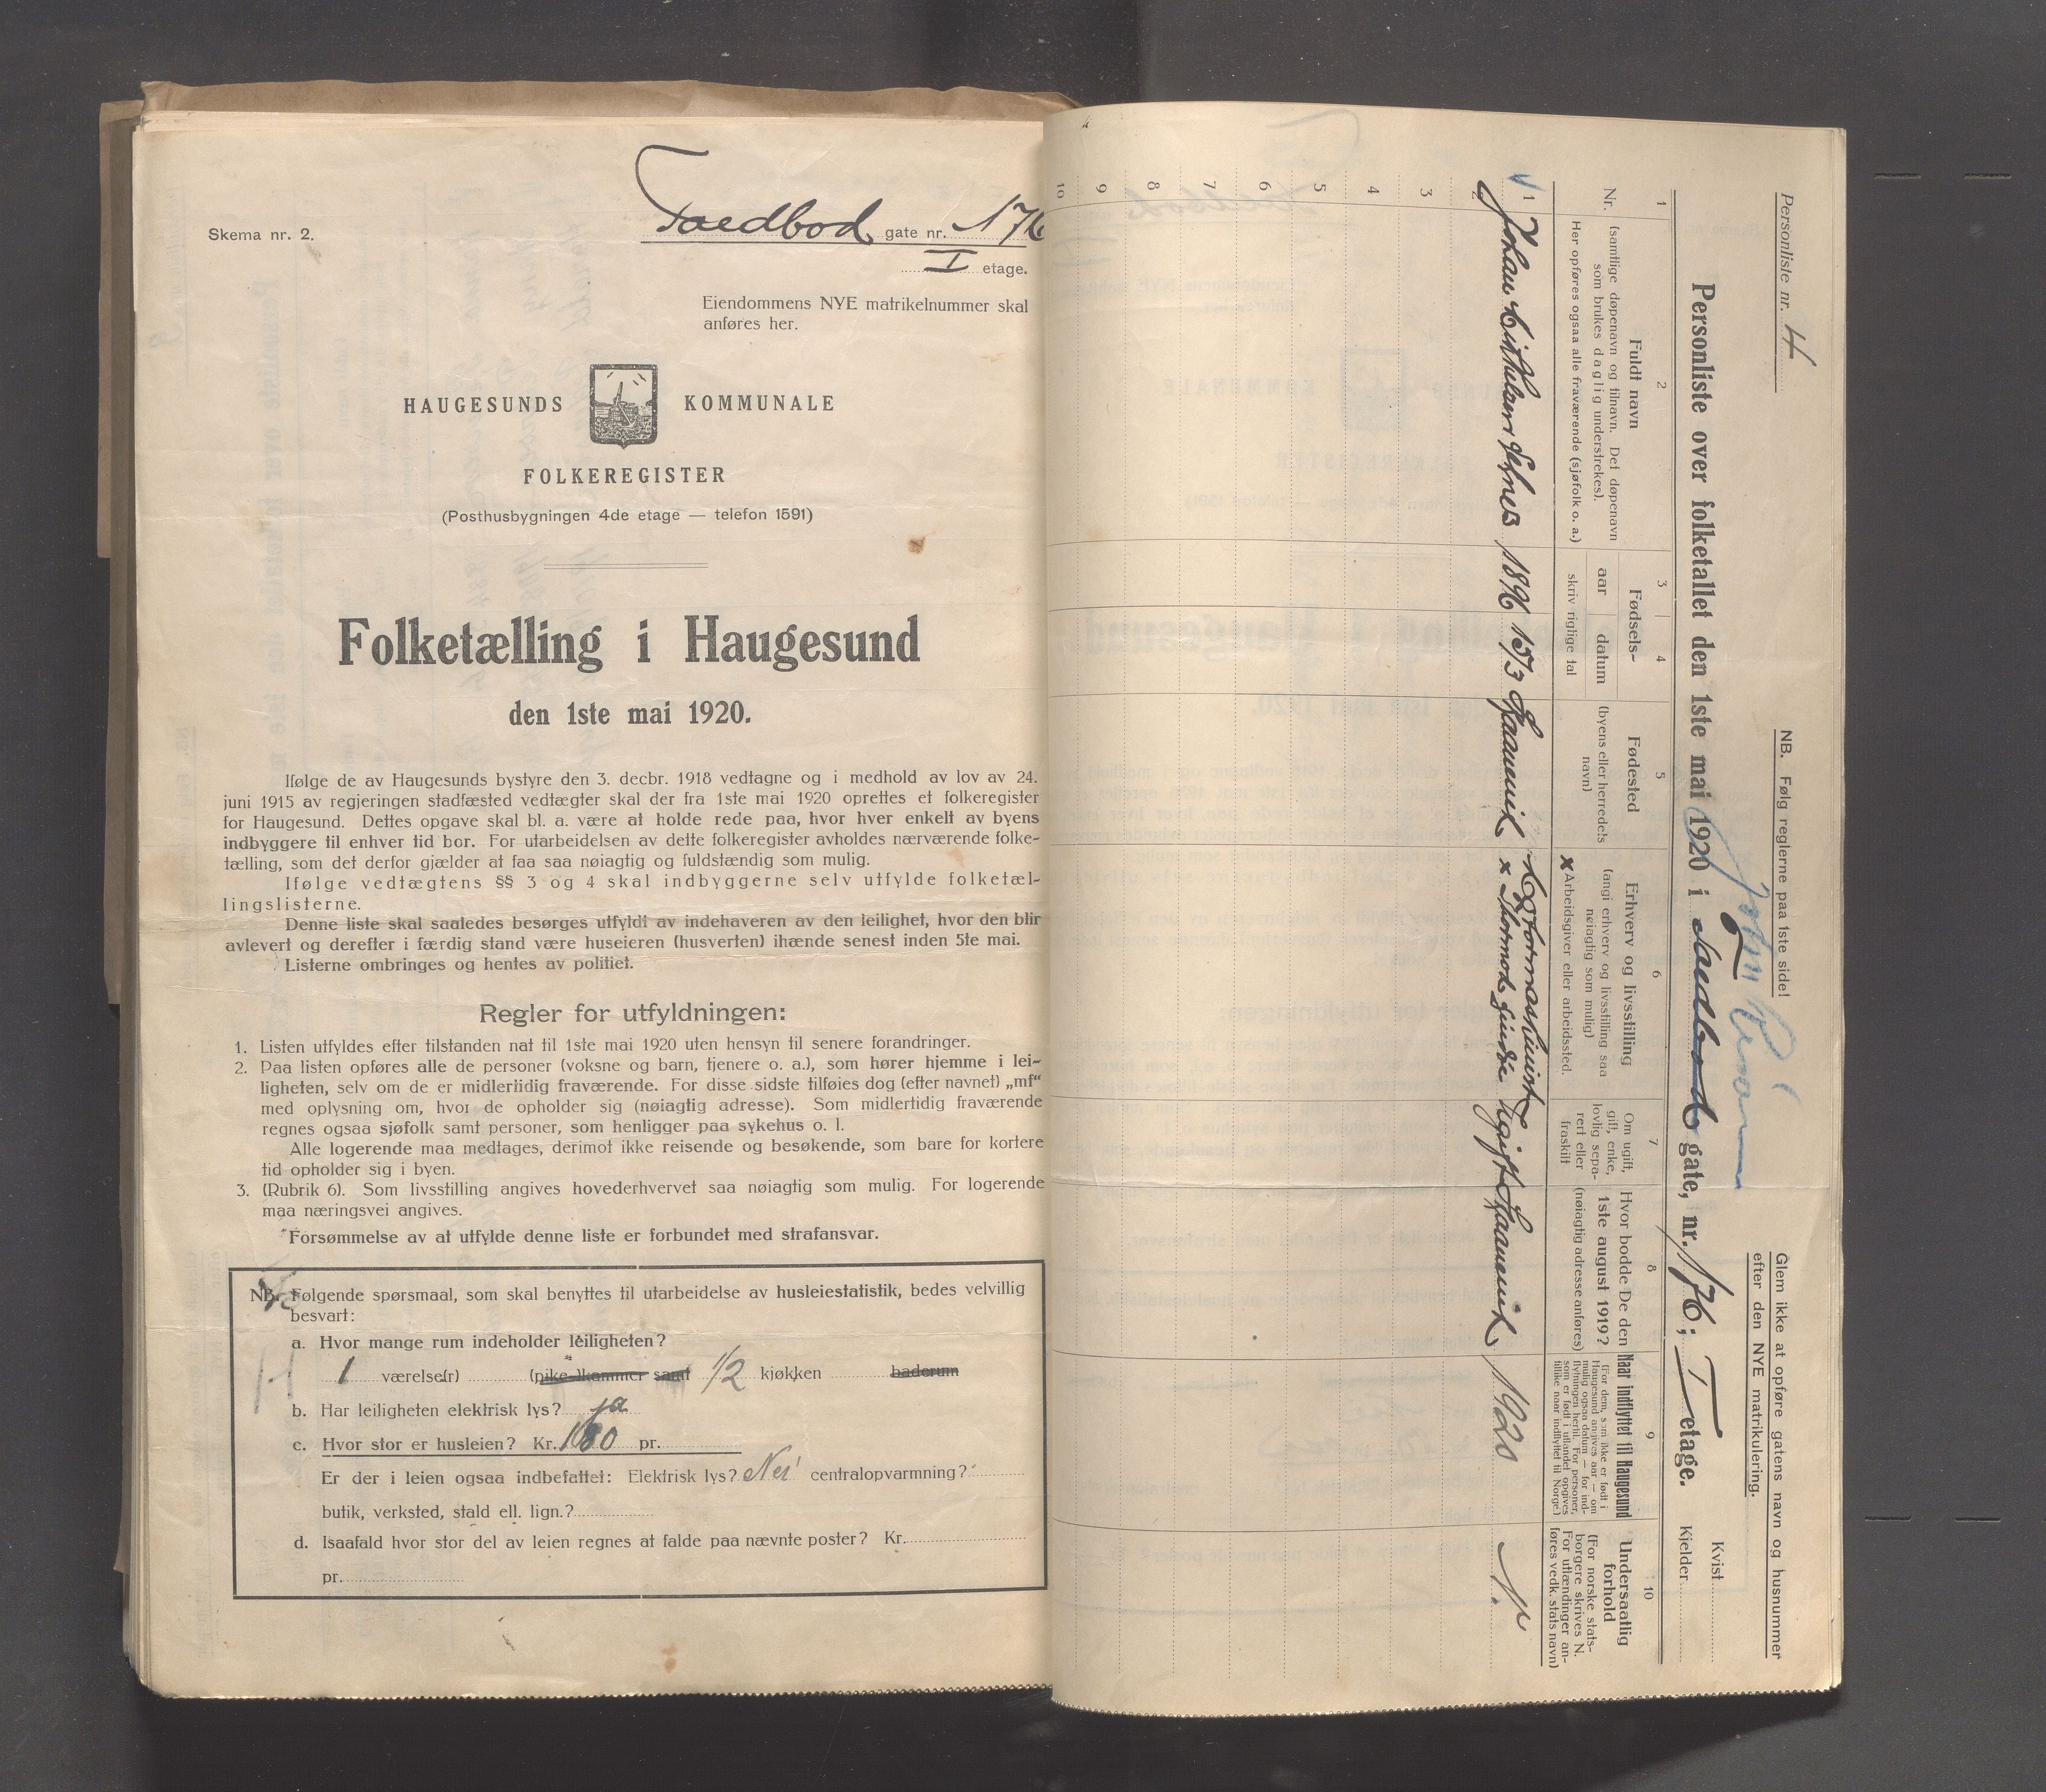 Skema nr. 2.
gate nr. 176
I etage.
Eiendommens NYE matrikelnummer skal
anføres her.
HAUGESUNDS KOMMUNALE
FOLKEREGISTER
(Posthusbygningen 4de etage — telefon 1591)
Folketælling i Haugesund
den 1ste mai 1920.
Ifølge de av Haugesunds bystyre den 3. decbr. 1918 vedtagne og i medhold av lov av 24.
juni 1915 av regjeringen stadfæsted vedtægter skal der fra 1ste mai 1920 oprettes et folkeregister
for Haugesund. Dettes opgave skal bl. a. være at holde rede paa, hvor hver enkelt av byens
indbyggere til enhver tid bor. For utarbeidelsen av dette folkeregister avholdes nærværende folke-
tælling, som det derfor gjælder at faa saa nøiagtig og fuldstændig som mulig.
Ifølge vedtægtens §§ 3 og 4 skal indbyggerne selv utfylde folketæl-
lingslisterne.
Denne liste skal saaledes besørges utfyldt av indehaveren av den leilighet, hvor den blir
avlevert og derefter i færdig stand være huseieren (husverten) ihænde senest inden 5te mai.
Listerne ombringes og hentes av politiet.
Regler for utfyldningen:
1. Listen utfyldes efter tilstanden nat til 1ste mai 1920 uten hensyn til senere forandringer.
2. Paa listen opføres alle de personer (voksne og barn, tjenere o. a.), som hører hjemme i lei-
ligheten, selv om de er midlertidig fraværende. For disse sidste tilføies dog (efter navnet) „mf“
med oplysning om, hvor de opholder sig (nøiagtig adresse). Som midlertidig fraværende
regnes ogsaa sjøfolk samt personer, som henligger paa sykehus o. l.
Alle logerende maa medtages, derimot ikke reisende og besøkende, som bare for kortere
tid opholder sig i byen.
3. (Rubrik 6). Som livsstilling angives hovederhvervet saa nøiagtig som mulig. For logerende
maa næringsvei angives.
Forsømmelse av at utfylde denne liste er forbundet med strafansvar.
NB. Følgende spørsmaal, som skal benyttes til utarbeidelse av husleiestatistik, bedes velvillig
besvart:
a. Hvor mange rum indeholder leiligheten?
1 værelse(r) (pike-)kammer samt 1/2 kjøkken baderum
b. Har leiligheten elektrisk lys? ja
c. Hvor stor er husleien? Kr. pr.
Er der i leien ogsaa indbefattet: Elektrisk lys? Nei centralopvarmning?
butik, verksted, stald ell. lign.?
d. Isaafald hvor stor del av leien regnes at falde paa nævnte poster? Kr.
pr.
Personliste nr. 4
NB. Følg reglerne paa 1ste side!
Glem ikke at opføre gatens navn og husnummer
efter den NYE matrikulering.
Personliste over folketallet den 1ste mai 1920 i gate, nr. 176; I etage.
Kvist
Kjelder
1 2 3 4 5 6 7 8 9 10
Nr.
Fuldt navn
(samtlige døpenavn og tilnavn. Det døpenavn
som brukes daglig understrekes).
Her opføres ogsaa alle fraværende (sjøfolk o. a.)
Fødsels-
aar
datum
skriv rigtige tal
Fødested
(byens eller herredets
navn)
Erhverv og livsstilling
(angi erhverv og livsstilling saa
nøiagtig som mulig)
x Arbeidsgiver eller arbeidssted.
Om ugift,
gift, enke,
lovlig sepa-
rert eller
fraskilt
Hvor bodde De den
1ste august 1919?
(nøiagtig adresse anføres)
Naar indflyttet til Haugesund
(For dem, som ikke er født i
Haugesund angives aar — om
mulig ogsaa datum — for ind-
flytningen hertil. For personer,
som er født i utlandet opgives
tillike naar indflyttet til Norge)
Undersaatlig
forhold
(For norske stats-
borgere skrives N.
For utlændinger an-
føres vedk. stats navn)
1 Johan 1896 15/3 Ugift 1920 N.
2
3
4
5
6
7
8
9
10